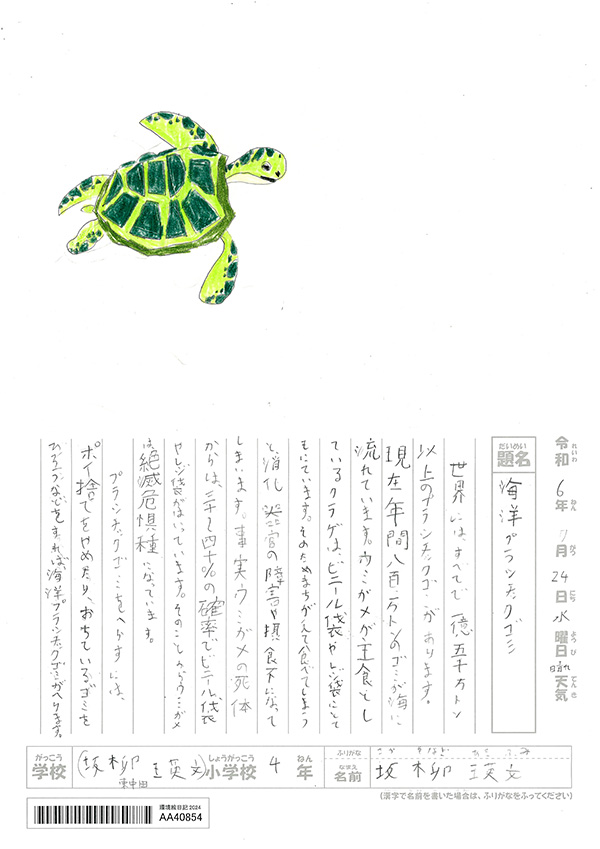 令和6年7月24日水曜日 晴れ 天気
れいわ ねん がつ にち ようび てんき
だいめい
題名
海洋プラスチックゴミ
世界には、すべてで一億五千万トン
以上のプラスチックゴミがあります。
現在年間八百万トンのゴミが海に
流れています。ウミガメが主食とし
ているクラゲは、ビニール袋やレジ袋にとて
もにています。そのためまちがえて食べてしまう
と、消化器官の障害や摂食不になって
しまいます。事実ウミガメの死体
からは、三十～四十%の確率でビニール袋
やレジ袋がはいっています。そのことからウミガメ
は絶滅危惧種になっています。
プラスチックゴミをへらすには、
ポイ捨てをやめたり、おちているゴミを
ひろうなどをすれば海洋プラスチックゴミがへります。
がっこう しょうがっこう ねん
学校 小学校 4年
栗中田
ふりがな
なまえ
名前
(漢字で名前を書いた場合は、ふりがなをふってください)
環境絵日記 2024
AA40854